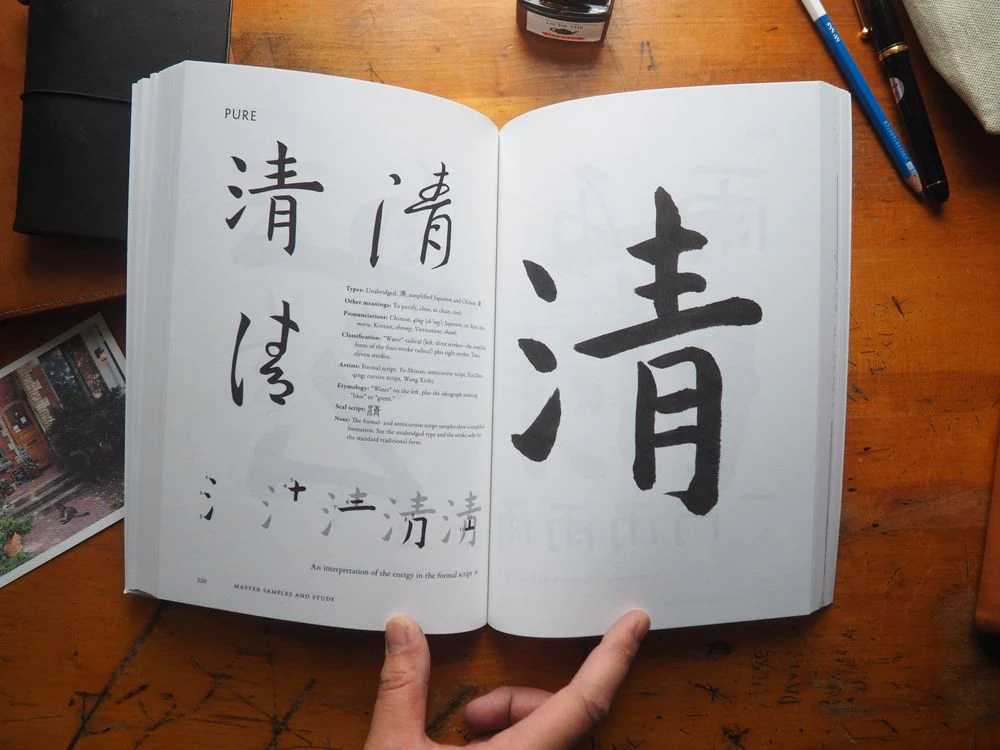 PURE
清 清
清
Types: Unabridged, 淸; simplified Japanese and Chinese 清
Other meanings: To purify, clear, to clean, cool.
Pronunciations: Chinese, qīng (ch'ing); Japanese,
Korean, cheong; Vietnamese, thanh.
Classification: "Water" radical (left, three strokes—the simplified
form of the four-stroke radical) plus eight strokes. Total
eleven strokes.
Artists: Formal script, Yu Shinan; semicursive script,
cursive script, Wang Xizhi.
Etymology: "Water" on the left, plus the ideograph meaning
"blue" or "green."
Seal script:
Note: The formal- and semicursive-script samples show a simplified
formation. See the unabridged type and the stroke order for
the standard traditional form.
An interpretation of the energy in the formal script >
220 MASTER SAMPLES AND STUDY
清